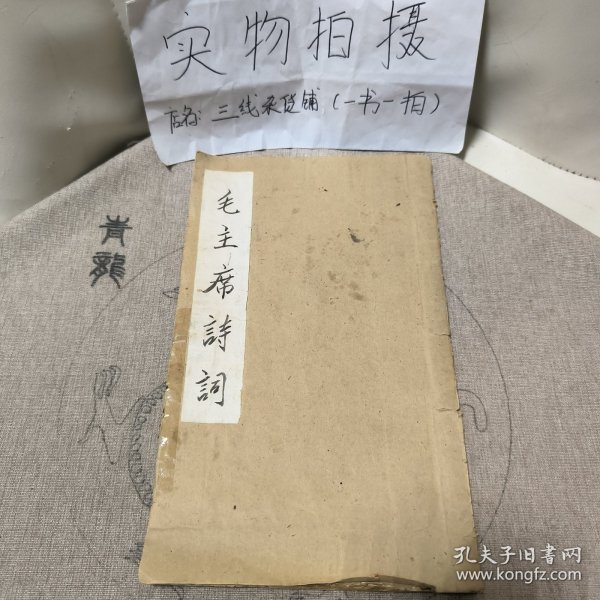 实物拍摄
店名：三线杂货铺（一书一拍）
毛主席詩詞
青龍
孔夫子旧書网
www.kongfz.com